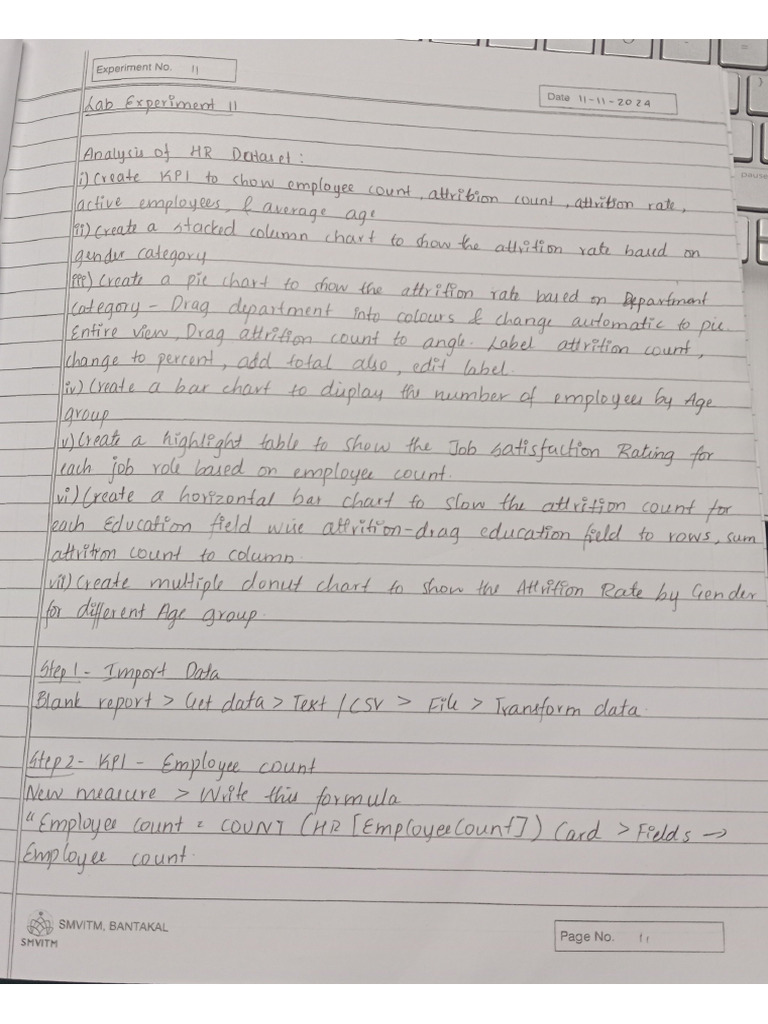 Experiment No. 11
Date 11-11-2024
Lab Experiment 11
Analysis of HR Dataset :
i) Create KPI to show employee count, attribion count, attribon rate,
active employees, & average age
ii) Create a stacked column chart to show the attrition rate based on
gender category
iii) Create a pie chart to show the attrition rate based on Department
Category - Drag department into colours & change automatic to pie.
Entire view, Drag attrition count to angle. Label attrition count,
change to percent, add total also, edit label.
iv) Create a bar chart to display the number of employees by Age
group
v) Create a highlight table to show the Job Satisfaction Rating for
each job role based on employee count.
vi) Create a horizontal bar chart to slow the attrition count for
each Education field wise attrition-drag education field to rows, sum
attrition count to column.
vii) Create multiple donut chart to show the Attrition Rate by Gender
for different Age group.
Step 1 - Import Data
Blank report > Get data > Text / CSV > File > Transform data.
Step 2 - KPI - Employee count
New measure > Write this formula
"Employee count = COUNT (HR [EmployeeCount]) Card > Fields →
Employee count.
SMVITM, BANTAKAL
SMVITM
Page No. 11
pause